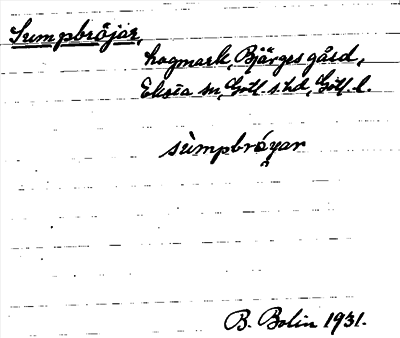 Sumpbröjar,
hagmark, Bjärges gård,
Eksta sn, Gotl. s. hd, Gotl. l.
sùmpbrǫ́yar
B. Bolin 1931.